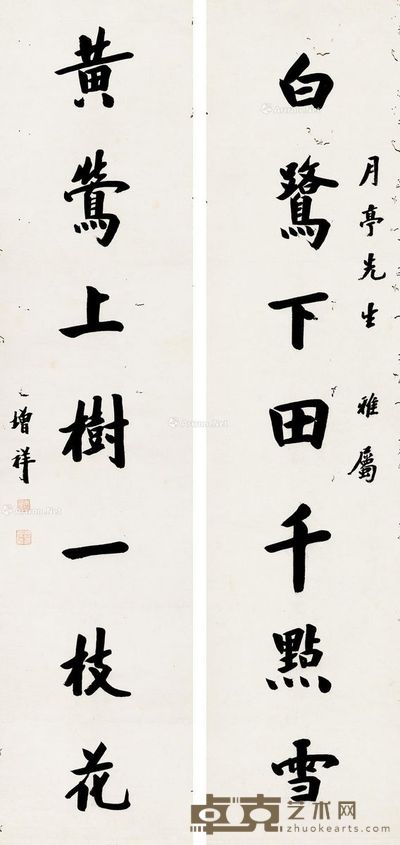 月亭先生 雅屬
白鷺下田千點雪
黃鶯上樹一枝花
增祥
Artron.Net
Artron.Net
Artron.Net
卓克艺术网
zhuokearts.com